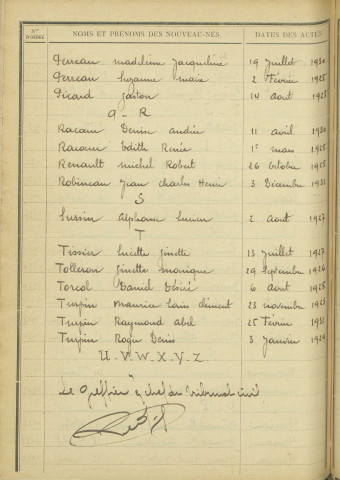 Nos D'ORDRE NOMS ET PRÉNOMS DES NOUVEAU-NÉS DATES DES ACTES
Perreau madeleine Jacqueline 19 Juillet 1930
Perreau Suzanne marie 2 Février 1925
Picard gaston 14 aout 1928
Q - R
Racam Denise andrée 11 avril 1930
Racam Edith Renée 1er mars 1928
Renault michel Robert 26 octobre 1928
Robineau Jean charles Henri 3 Décembre 1931
S
Sursin Alphonse Lucien 2 aout 1927
T
Tissier Lucette Ginette 13 Juillet 1927
Tolleron Ginette monique 29 Septembre 1926
Torcol Daniel Désiré 6 aout 1928
Turpin maurice Louis clément 23 novembre 1923
Turpin Raymond abel 25 Février 1931
Turpin Roger Denis 3 Janvier 1929
U.V.W.X.Y.Z.
Le Greffier en chef du Tribunal civil